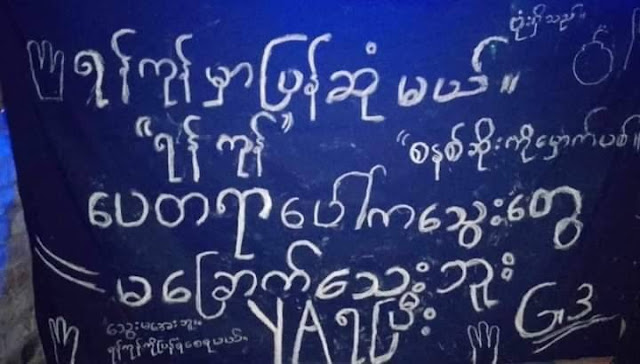 ဗုံးရှိသည်။
ရန်ကုန်မှာပြန်ဆုံမယ်။
"ရန်ကုန်"
"စနစ်ဆိုးကိုမှောက်ပစ်။
ပေတရာပေါ်ကသွေးတွေ
မခြောက်သေးဘူး
YAရပြီး
G3
သွေးမအေးဘူး။
ရန်ကုန်ကိုပြန်ရစေရမယ်။